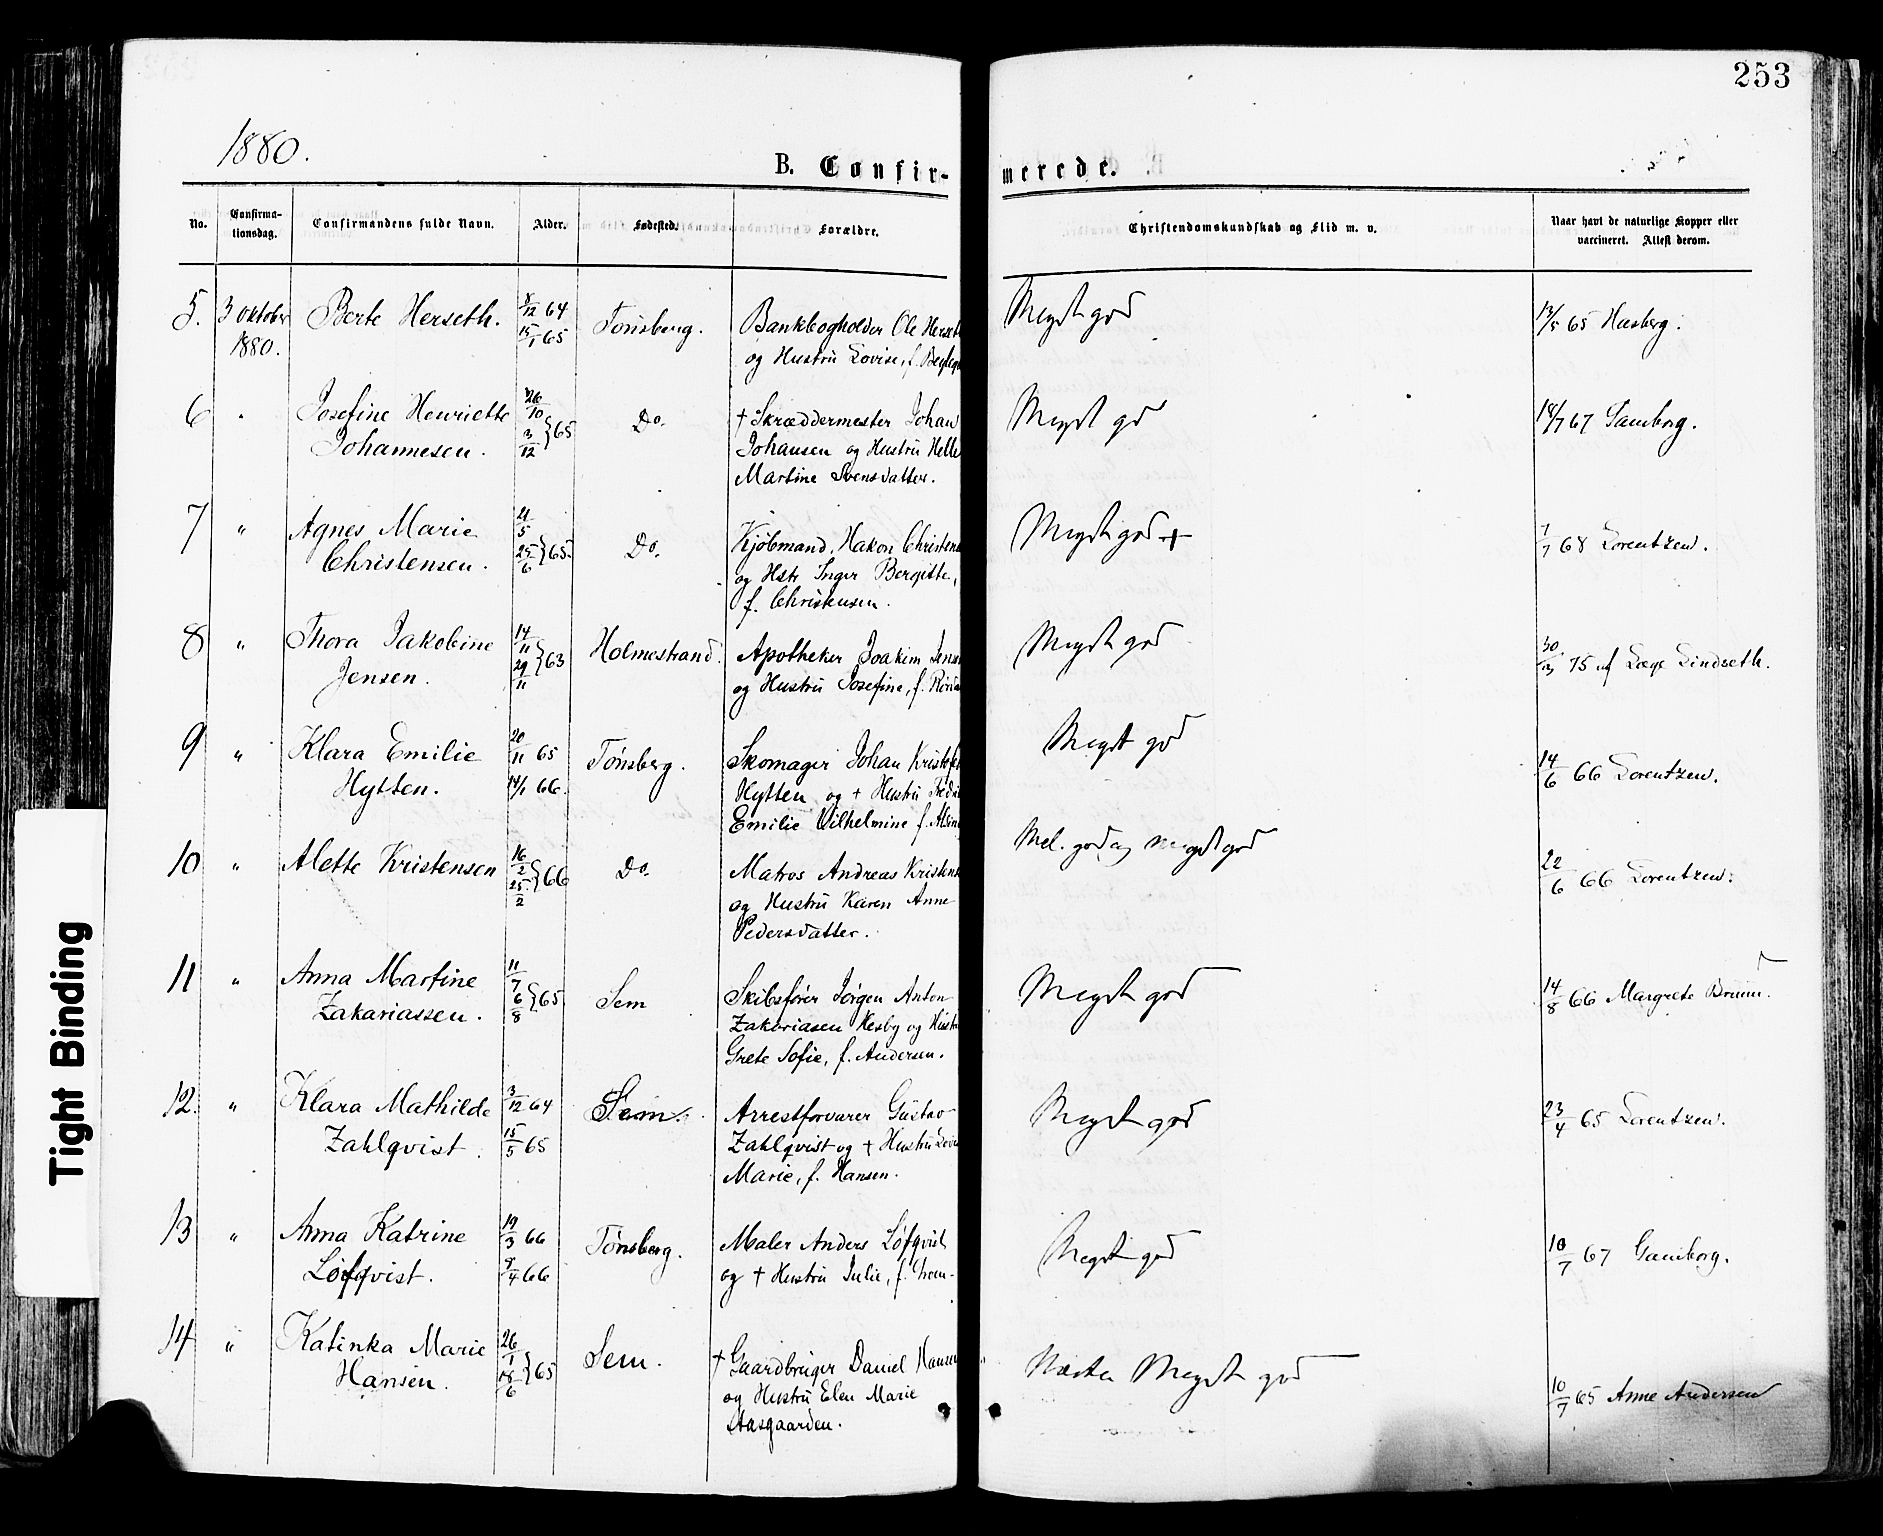 253
1880.
B. Confir-
merede.
No.
Confirma-
tionsdag.
Confirmandens fulde Navn.
Alder.
Fødested.
Forældre.
Christendomskundskab og Flid m. v.
Naar havt de naturlige Kopper eller
vaccineret. Attest derom.
5. 3 Oktober Berte Herseth. 8/12 64 Tønsberg. Bankbogholder Ole Herseth Meget god 13/5 65 Hasberg.
1880. 15/1 65 og Hustru Lovise, f.
6 Josefine Henriette 26/10 Do. † Skræddermester Johan Meget god 18/7 67
Johannesen. 3/12 } 65 Johansen og Hustru Helle
Martine Svensdatter.
7 " Agnes Marie 21/5 Do. Kjöbmand Hakon Christens Meget god + 7/7 68 Lorentzen.
Christensen. 25/6 } 65. og Hstr Inger Bergitte,
f. Christensen.
8 " Thora Jakobine 14/11 Holmestrand. Apotheker Joakim Jensen Meget god 30/3 75 af Læge Lindseth.
Jensen. 29/11 } 63 og Hustru Josefine, f.
9 " Klara Emilie 20/11 65 Tønsberg. Skomager Johan Kristofer Meget god 14/6 66 Lorentzen.
Hytten. 14/1 66. Hytten og † Hustru
Emilie Vilhelmine f.
10 " Alette Kristensen 16/2 Do. Matros Andreas Kristens Mel. god og meget god 22/6 66 Lorentzen.
25/2 } 66 og Hustru Karen Anne
Pedersdatter.
11 " Anna Martine 11/7 Sem Skibsfører Jørgen Anton Meget god 14/8 66 Margrete Bruun.
Zakariassen. 6/8 } 65 Zakariasen Hesby og Hustru
Grete Sofie, f. Andersen.
12. " Klara Mathilde 3/12 64 Sem. Arrestforvarer Gustav Meget god 23/4 65 Lorentzen.
Zahlqvist. 15/5 65 Zahlqvist og † Hustru
Marie, f. Hansen.
13 " Anna Katrine 19/3 66 Tønsberg. Maler Anders Løfqvist Meget god 18/7 67
Løfqvist. 9/4 66 og † Hustru Julie, f.
14 " Katinka Marie 26/1 Sem. † Gaardbruger Daniel Hansen Næsten Meget god 10/7 65 Anne Andersen
Hansen. 18/6 } 65 og Hustru Elen Marie
Aasgaarden.
Tight Binding